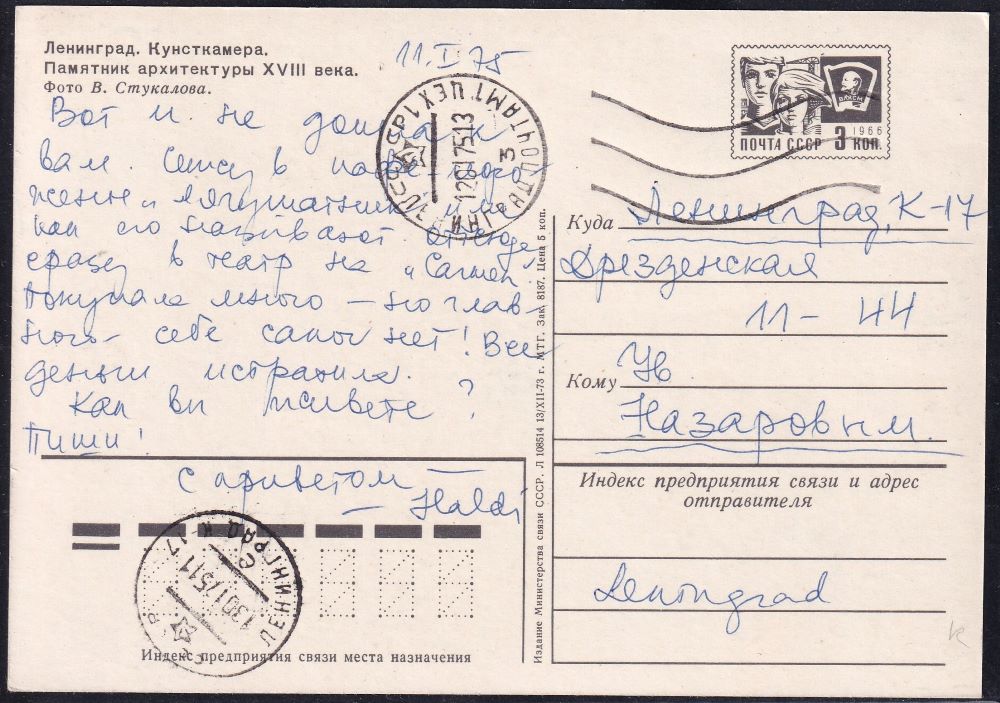 Ленинград. Кунсткамера.
Памятник архитектуры XVIII века.
Фото В. Стукалова.
11.I 75
Вот и не дошла к
вам. Сижу в кафе моро
жение „Лягушатник"
как его называют. Отсюда
сразу в театр на „Carmen".
Покупала много — но глав-
ного себе сапог нет! Все
деньги истратила.
Как вы живете?
Пиши!
с приветом
— Haldi
ПОЧТА СССР 3 КОП.
1966
ВЛКСМ
Куда Ленинград, К-17
Дрезденская
11 - 44
Кому Ув
Назаровым.
Индекс предприятия связи и адрес
отправителя
Leningrad
Индекс предприятия связи места назначения
Издание Министерства связи СССР. Л 108514 13/XII-73 г. МТГ. Зак. 8187. Цена 5 коп.
ПОЧТАМТ ЦЕХ 1
ЛЕНИНГРАД К 17
к